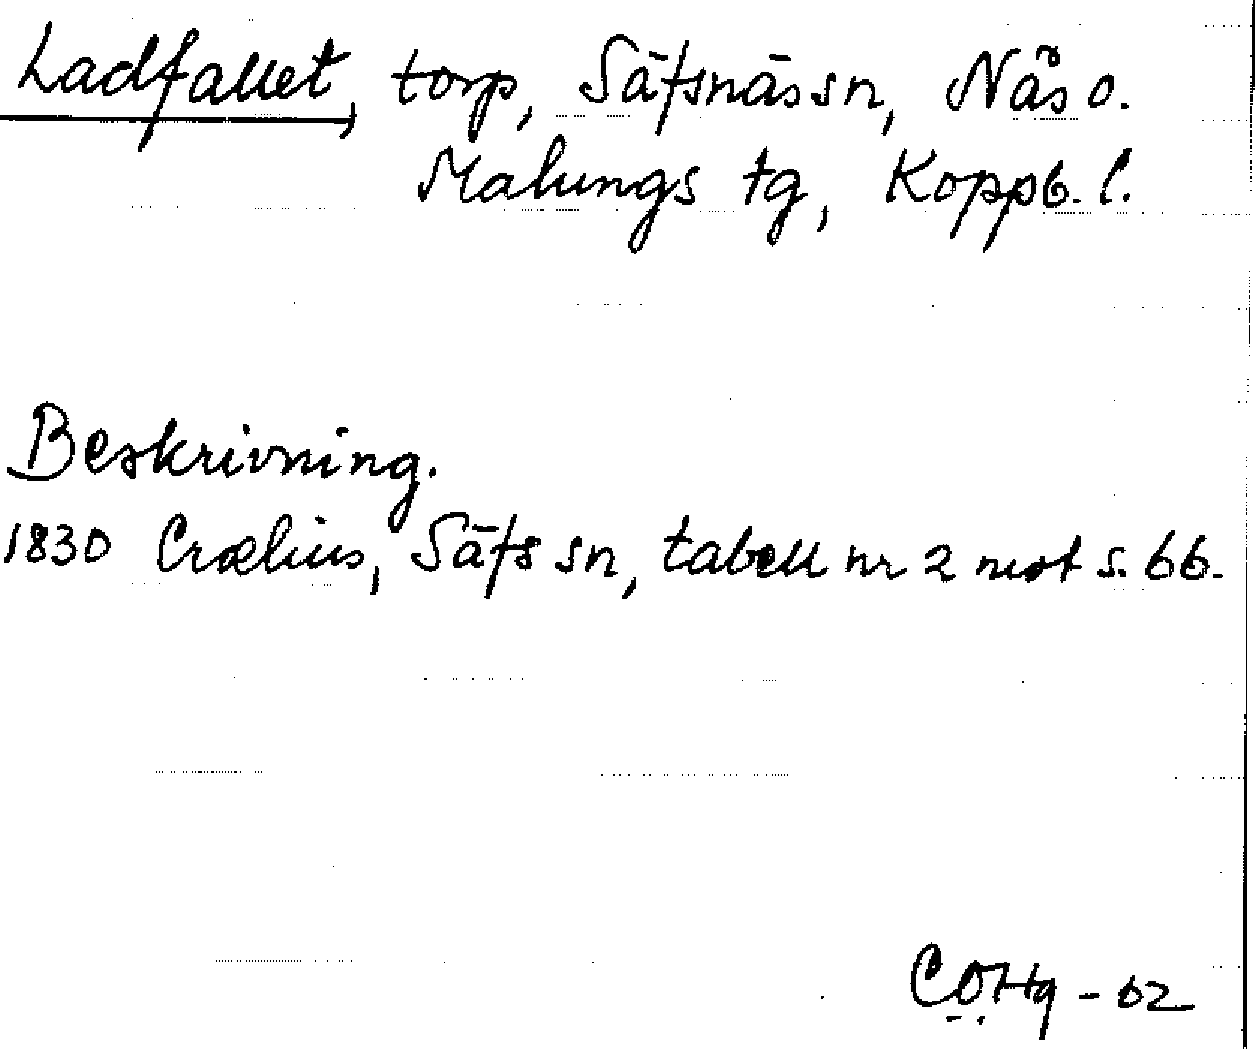 Ladfallet, torp, Säfsnäs sn, Nås o.
Malungs tg, Koppb. l.
Beskrivning.
1830 Crælius, Säfs sn, tabell nr 2 mot s. 66.
COHg - 62